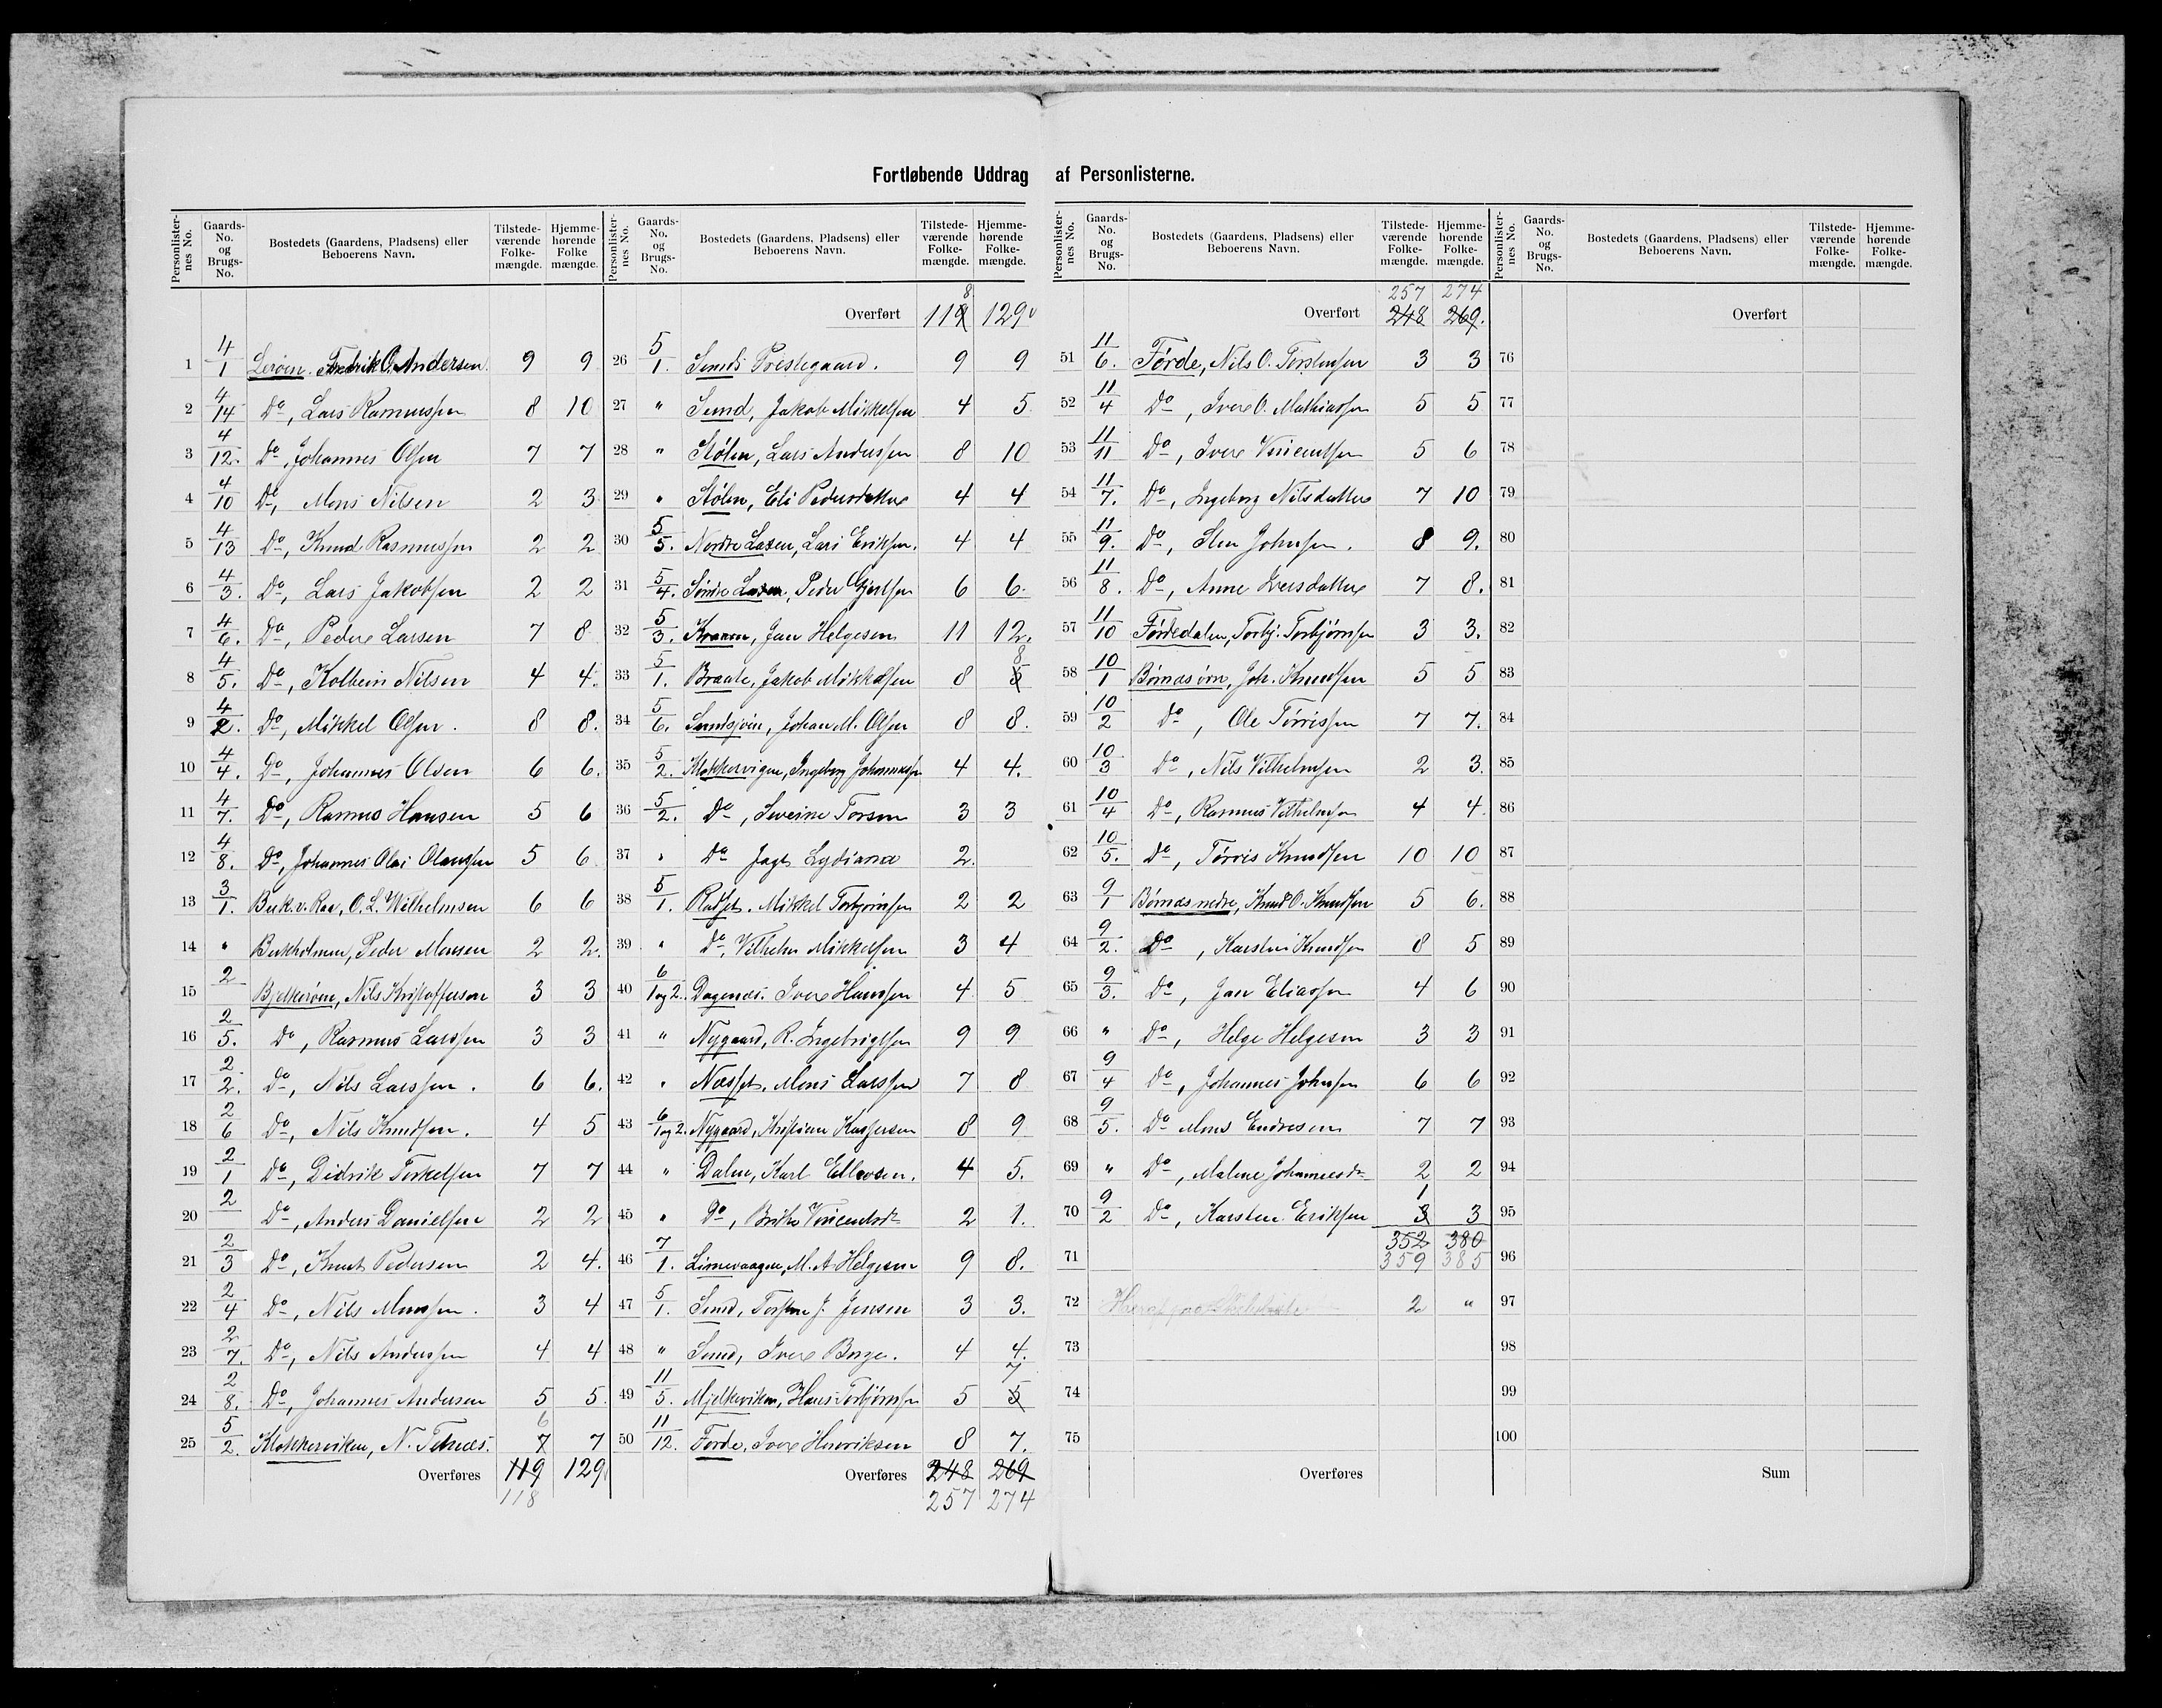 Fortløbende Uddrag af Personlisterne.
Personlister-nes No. Gaards-No. og Brugs-No. Bostedets (Gaardens, Pladsens) eller Beboerens Navn. Tilstede-værende Folke-mængde. Hjemme-hørende Folke mængde.
1 4/1 Lerøen. Fredrik O. Andersen. 9 9
2 4/14 Do, Lars Rasmussen 8 10
3 4/12. Do, Johannes Olsen 7 7
4 4/10 Do, Mons Nilsen 2 3
5 4/13 Do, Knud Rasmussen 2 2
6 4/3. Do, Lars Jakobsen 2 2
7 4/6. Do, Peder Larsen 7 8
8 4/5. Do, Kolbein Nilsen 4 4.
9 4/2. Do, Mikkel Olsen. 8 8.
10 4/4. Do, Johannes Olsen 6 6.
11 4/7. Do, Rasmus Hansen 5 6
12 4/8. Do, Johannes Olai Olaussen 5 6
13 3/1. Buk. v. Raa, O. L. Wilhelmsen 6 6
14 " Bukholmen, Peder Monsen 2 2.
15 2 Bjelkerøen, Nils Kristoffersen 3 3
16 2/5. Do, Rasmus Larssen 3 3
17 2/2. Do, Nils Larssen. 6 6.
18 2/6 Do, Nils Knudsen. 4 5
19 2/1 Do, Didrik Terkelsen 7 7
20 2 Do, Anders Danielsen 2 2
21 2/3 Do, Knut Pedersen 2 4.
22 2/4 Do, Nils Monssen. 3 4
23 2/7. Do, Nils Anderssen 4 4
24 2/8. Do, Johannes Andersen 5 5.
25 5/2. Klokkerviken, N. Teknes. 6 7 7
Overføres 119 129
118
Personlister-nes No. Gaards-No. og Brugs-No. Bostedets (Gaardens, Pladsens) eller Beboerens Navn. Tilstede-værende Folke-mængde. Hjemme-hørende Folke-mængde.
8
Overført 119 129
26 5/1. Sunds Prestegaard. 9 9
27 " Sund, Jakob Mikkelsen 4 5
28 " Stølen, Lars Anderssen 8 10
29 " Stølen, Eli Pedersdatter 4 4
30 5/5. Nordre Laxen, Lars Eriksen. 4 4
31 5/4. Søndre Laxen, Peder Gjertsen 6 6.
32 5/3. Kraam, Jan Helgesen 11 12.
33 5/1. Braate, Jakob Mikkelsen 8 8 5
34 5/6. Sundsjøen, Johan M. Olsen 8 8.
35 5/2. Klokkervigen, Ingeborg 4 4.
36 5/2. Do, Severine Torsen 3 3
37 " Do Jagt Lydiana 2.
38 5/1. Rødset. Mikkel Torbjørnsen 2 2
39 " Do, Vilhelm Mikkelsen 3 4
40 6/1og2. Dagenes. Iver Hanssen 4 5
41 " Nygaard, R. Ingebrigtsen 9 9
42 " Nesset, Mons Larssen 7 8
43 6/1og2. Nygaard, Kristian Kaspersen 8 9
44 " Dalen, Karl Ellevsen. 4 5.
45 " Do, Brithe Vincentsdr 2 1.
46 7/1. Limevaagen, M. A. Helgesen 9 8.
47 5/1. Sund, Torsten J. Jensen 3 3.
48 " Sund, Iver Borge. 4 4.
49 11/5. Mjelkeviken, Hans Torbjørnsen 5 7 5
50 11/12. Førde, Iver Henriksen 8 7.
Overføres 248 269
257 274
Personlister-nes No. Gaards-No. og Brugs-No. Bostedets (Gaardens, Pladsens) eller Beboerens Navn. Tilstede-værende Folke-mængde. Hjemme-hørende Folke-mængde.
257 274
Overført 248 269.
51 11/6. Førde, Nils O. Torstensen 3 3
52 11/4 Do, Iver O. Mathiassen 5 5
53 11/11 Do, Iver Vincentsen 5 6
54 11/7. Do, Ingeborg Nilsdatter 7 10
55 11/9. Do, Sten Johnsen. 8 9.
56 11/8. Do, Anne Iversdatter 7 8.
57 11/10 Førdedalen, Torbj. Torbjørnsen 3 3.
58 10/1 Børnæs øvre, Joh. Knudsen 5 5
59 10/2 Do, Ole Tørrissen 7 7.
60 10/3 Do, Nils Vilhelmsen 2 3.
61 10/4 Do, Rasmus Vilhelmsen 4 4
62 10/5. Do, Tørris Knudsen 10 10
63 9/1 Børnæs nedre, Knud O. Knudsen 5 6.
64 9/2. Do, Karsten Knudsen 8 5
65 9/3. Do, Jan Eliassen 4 6
66 " Do, Helge Helgesen 3 3
67 9/4 Do, Johannes Johnsen 6 6
68 9/5. Do Mons Endresen 7 7
69 " Do, Malene Johannesdr 2 2
70 9/2 Do, Karsten Eriksen 1 3 3
352 380
71 359 385
72 Heraf paa 2 "
73
74
75
Overføres
Personlister-nes No. Gaards-No. og Brugs-No. Bostedets (Gaardens, Pladsens) eller Beboerens Navn. Tilstede-værende Folke-mængde. Hjemme-hørende Folke-mængde.
Overført
76
77
78
79
80
81
82
83
84
85
86
87
88
89
90
91
92
93
94
95
96
97
98
99
100
Sum